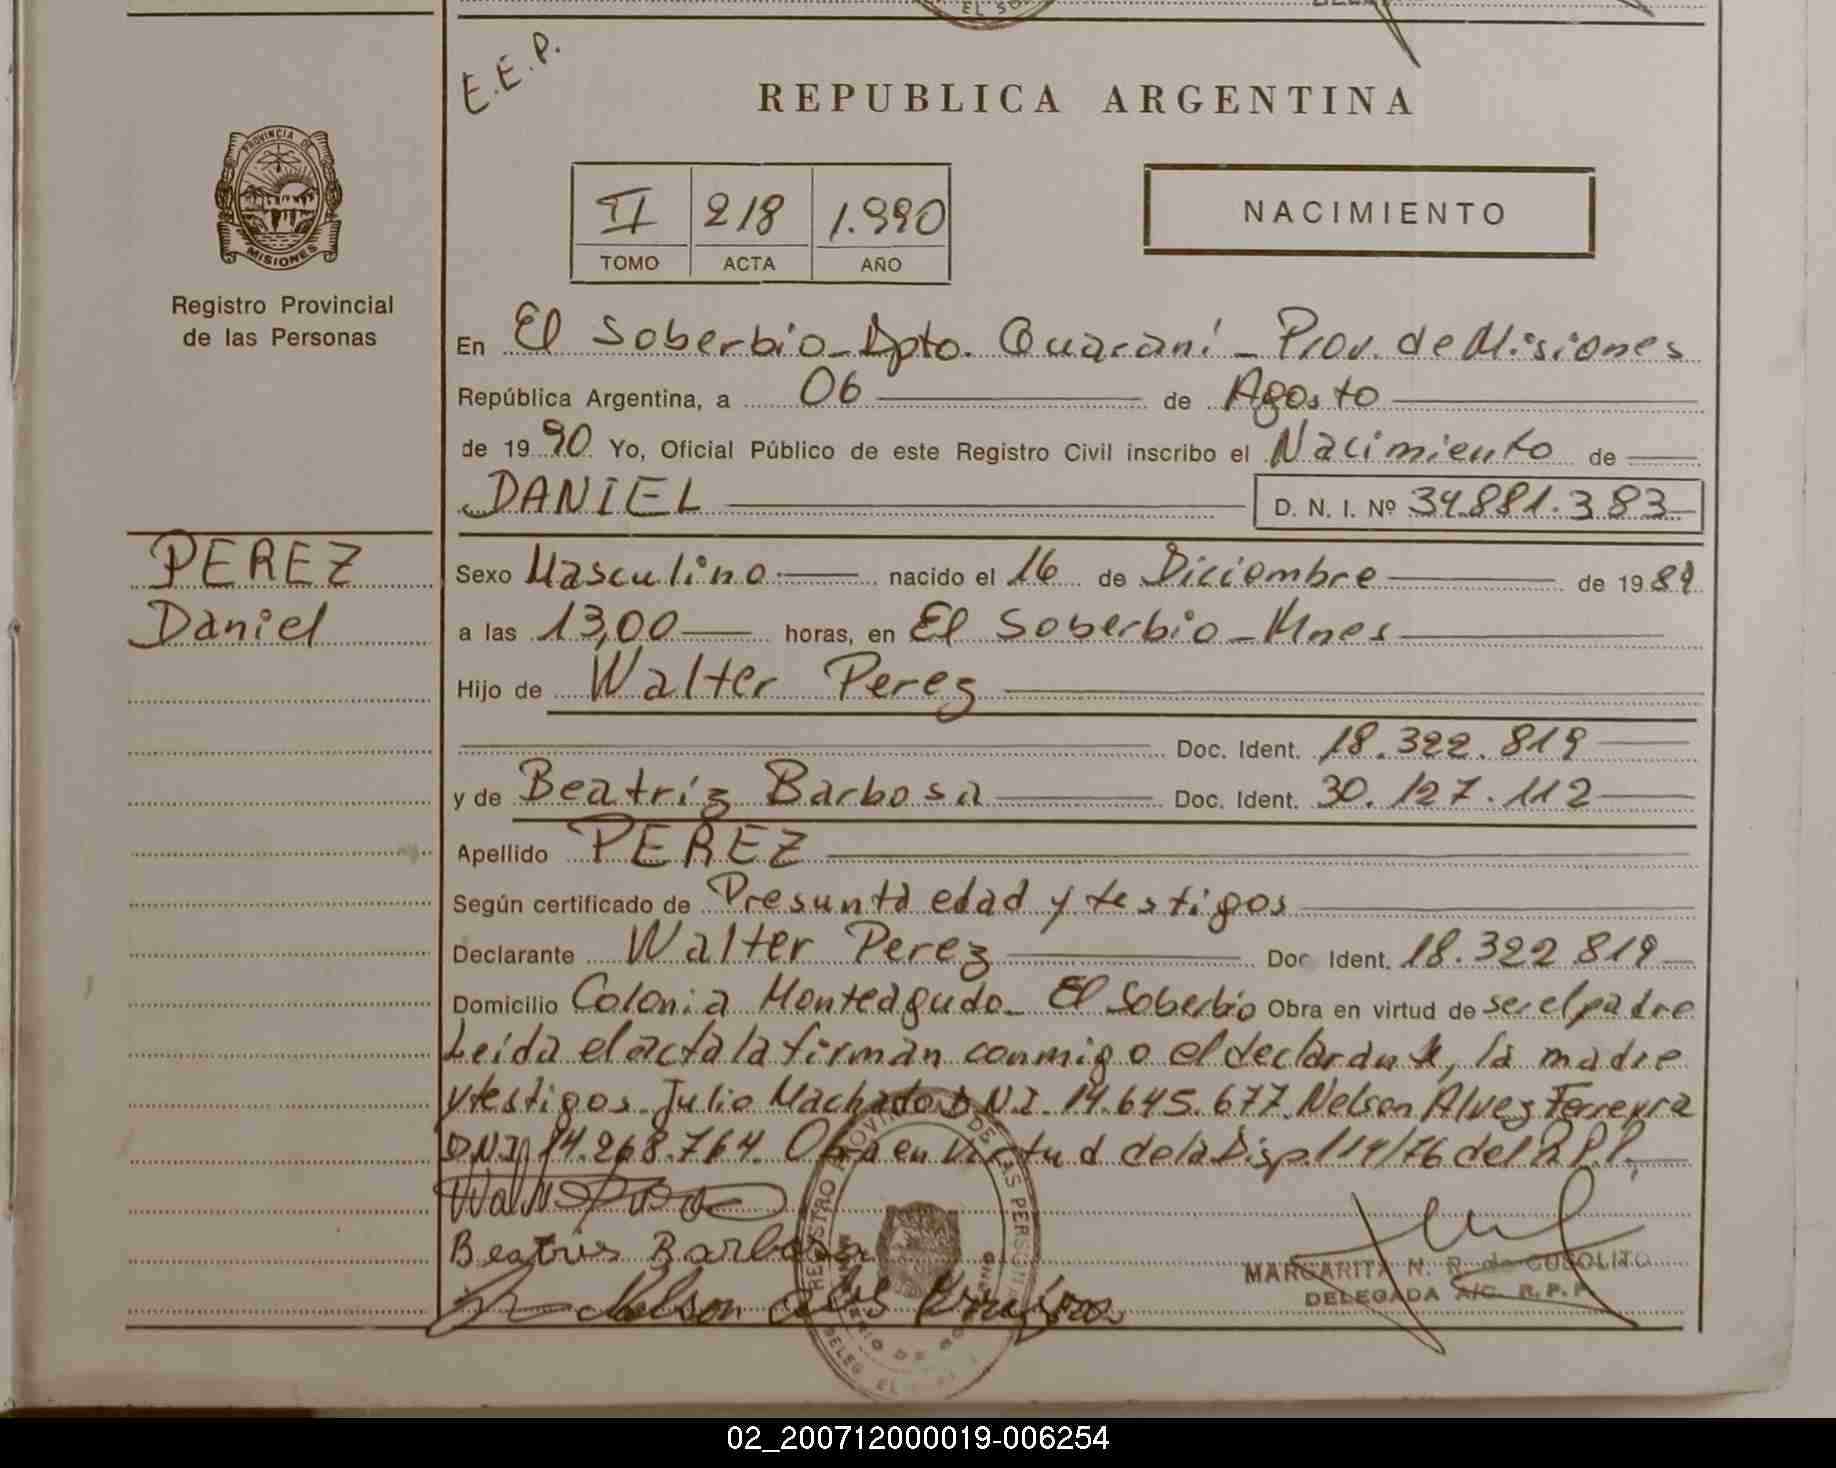 E.E.P.
REPUBLICA ARGENTINA
PROVINCIA DE
MISIONES
Registro Provincial
de las Personas
II 218 1.990
TOMO ACTA AÑO
NACIMIENTO
En El Soberbio - Dpto. Guaraní - Prov. de Misiones
República Argentina, a 06 de Agosto
de 1990 Yo, Oficial Público de este Registro Civil inscribo el Nacimiento de
DANIEL D. N. I. Nº 34.881.383
PEREZ
Daniel
Sexo Masculino nacido el 16 de Diciembre de 1989
a las 13,00 horas, en El Soberbio - Mnes
Hijo de Walter Perez
Doc. Ident. 18.322.819
y de Beatríz Barbosa Doc. Ident. 30.127.112
Apellido PEREZ
Según certificado de Presunta edad y testigos
Declarante Walter Perez Doc Ident. 18.322 819
Domicilio Colonia Monteagudo - El Soberbio Obra en virtud de ser el padre
Leída el acta la firman conmigo el declarante, la madre
y testigos. Julio Machado D.N.I. 14.645.677. Nelson Alvez Ferreyra
D.N.I. 14.268.764. Obra en virtud de la Disp. 114/76 del R.P.P.
Beatris Barbosa
MARGARITA N. R. de CUSOLITO
DELEGADA A/C. R.P.P
Nelson
REGISTRO PROVINCIAL DE LAS PERSONAS
02_200712000019-006254